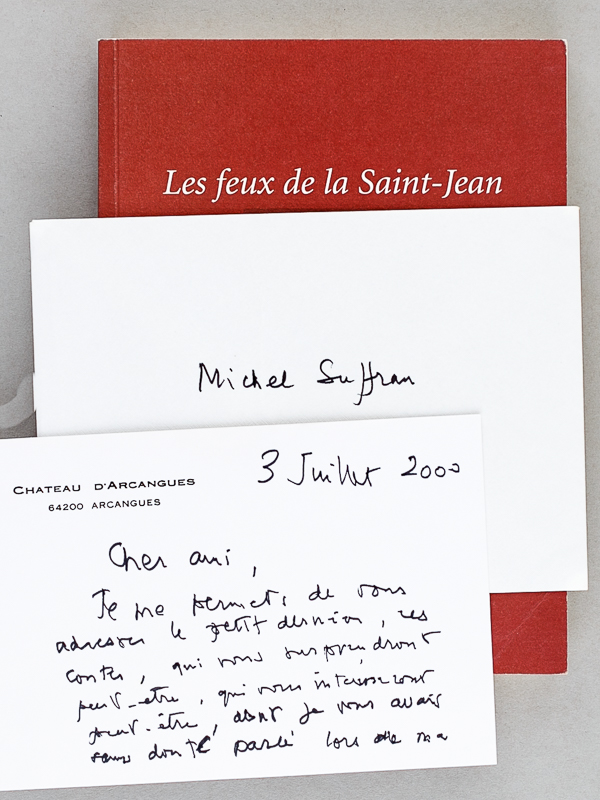 Les feux de la Saint-Jean
Michel Suffran
3 Juillet 2000
CHATEAU D'ARCANGUES
64200 ARCANGUES
Cher ami,
Je me permets de vous
adresser le petit dernier, ces
contes, qui vous surprendront
peut-être, qui vous intéresseront
peut-être, dont je vous avais
sans doute parlé lors de ma